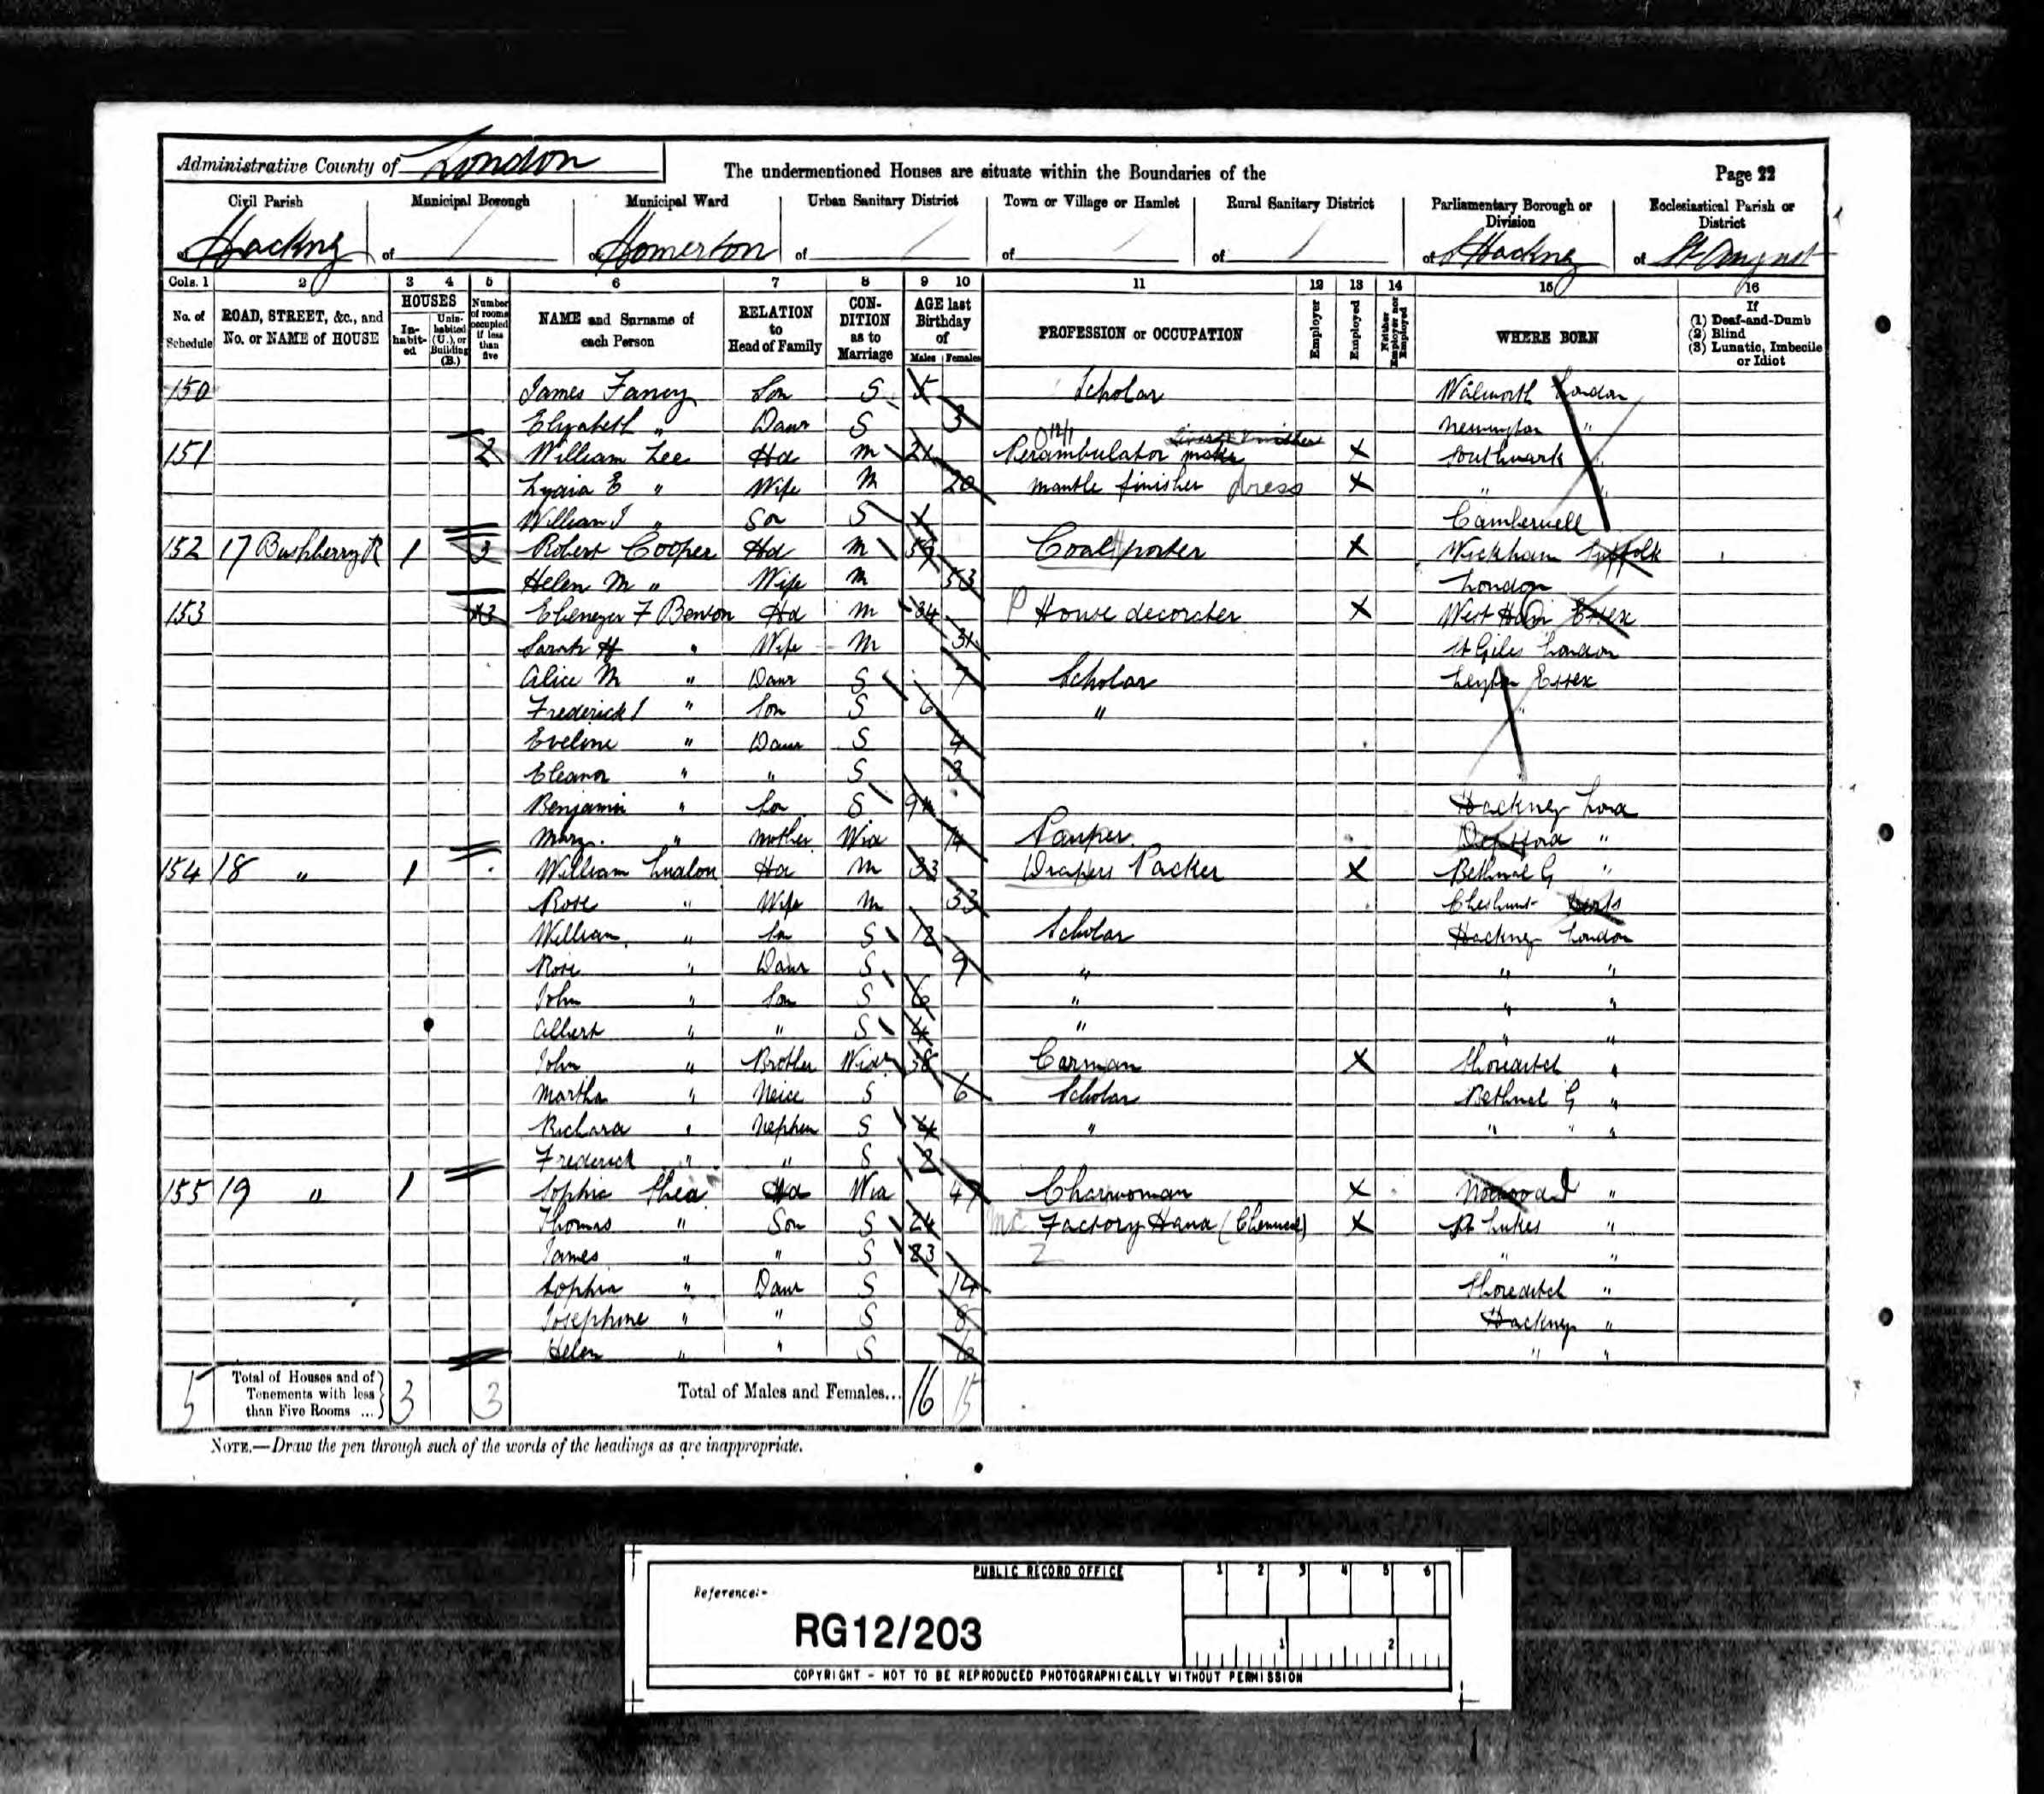 Administrative County of London
The undermentioned Houses are situate within the Boundaries of the
Page 22
Civil Parish Municipal Borough Municipal Ward Urban Sanitary District Town or Village or Hamlet Rural Sanitary District Parliamentary Borough or Division Ecclesiastical Parish or District
of Hackney of of Homerton of of of of Hackney of St
Cols. 1 2 3 4 5 6 7 8 9 10 11 12 13 14 15 16
No. of Schedule ROAD, STREET, &c., and No. or NAME of HOUSE HOUSES In-habit-ed Unin-habited (U.), or Building (B.) Number of rooms occupied if less than five NAME and Surname of each Person RELATION to Head of Family CON-DITION as to Marriage AGE last Birthday of Males Females PROFESSION or OCCUPATION Employer Employed Neither Employer nor Employed WHERE BORN If (1) Deaf-and-Dumb (2) Blind (3) Lunatic, Imbecile or Idiot
150 James Fancy Son S 5 Scholar Walworth London
Elizabeth " Daur S 3 Newington "
151 2 William Lee Hd M 21 Perambulator maker X Southwark "
Lydia E " Wife M 20 Mantle finisher dress X " "
William J " Son S Camberwell
152 17 Bushberry R 1 3 Robert Cooper Hd M 59 Coal porter X Wickham Suffolk
Helen M " Wife M 53 London
153 3 Ebenezer F Benson Hd M 34 House decorater X West Ham Essex
Sarah H " Wife M 31 St Giles London
Alice M " Daur S 7 Scholar Leyton Essex
Frederick J " Son S 6 " "
Eveline " Daur S 4
Eleanor " " S 3
Benjamin " Son S 9m Hackney Lond
Mary " Mother Wid Pauper Deptford "
154 18 " 1 William Ludlow Hd M 33 Drapers Packer X Bethnal G "
Rose " Wife M 33 Cheshunt Herts
William " Son S 12 Scholar Hackney London
Rose " Daur S 9 " " "
John " Son S 6 " " "
Albert " " S 4 " " "
John " Brother Widr 38 Carman X Shoreditch "
Martha " Neice S 6 Scholar Bethnel G "
Richard " Nephew S 4 " " " "
Frederick " " S 2
155 19 " 1 Sophia Shea Hd Wid 47 Charwoman X Norwood "
Thomas " Son S 24 Factory Hand (Chemical) X St Lukes "
James " " S 23 " "
Sophia " Daur S 14 Shoreditch "
Josephine " " S 8 Hackney "
Helen " " S 6 " "
5 Total of Houses and of Tenements with less than Five Rooms ... 3 3 Total of Males and Females... 16 15
NOTE.—Draw the pen through such of the words of the headings as are inappropriate.
PUBLIC RECORD OFFICE
1 2 3 4 5 6
Reference:-
RG12/203
1 2
COPYRIGHT - NOT TO BE REPRODUCED PHOTOGRAPHICALLY WITHOUT PERMISSION